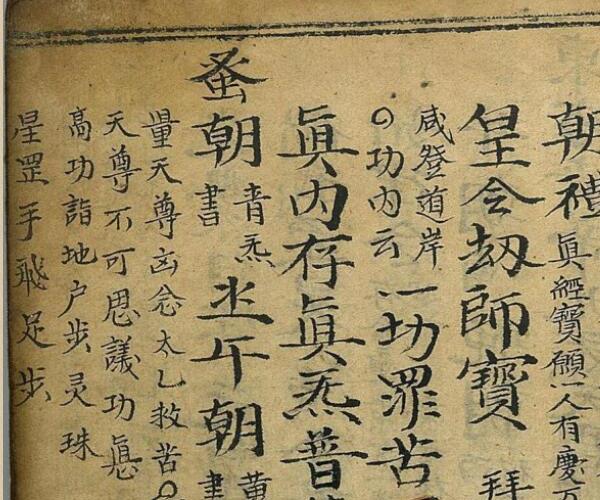 朝禮眞經寶願一人有慶
皇令劫師寶拜
咸登道岸
功内云
一切罪苦
眞内存眞炁普
蚤朝
青炁
書
午朝
黄
書
量天尊念太乙救苦
天尊不可思議功悳
高功詣地户步灵珠
星罡手飛足步